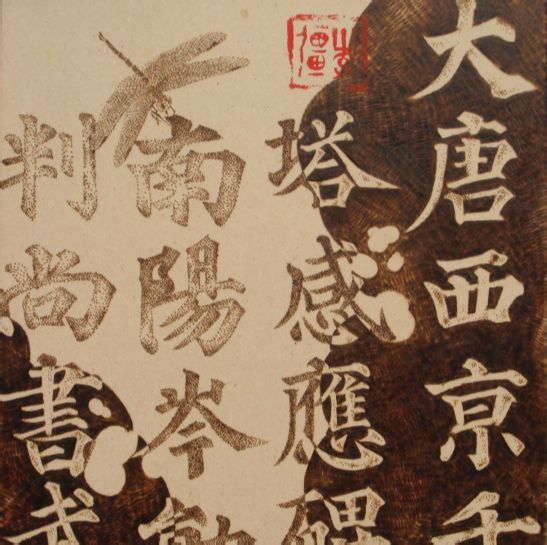 大唐西京千
塔感應碑
南陽岑勛
判尚書武